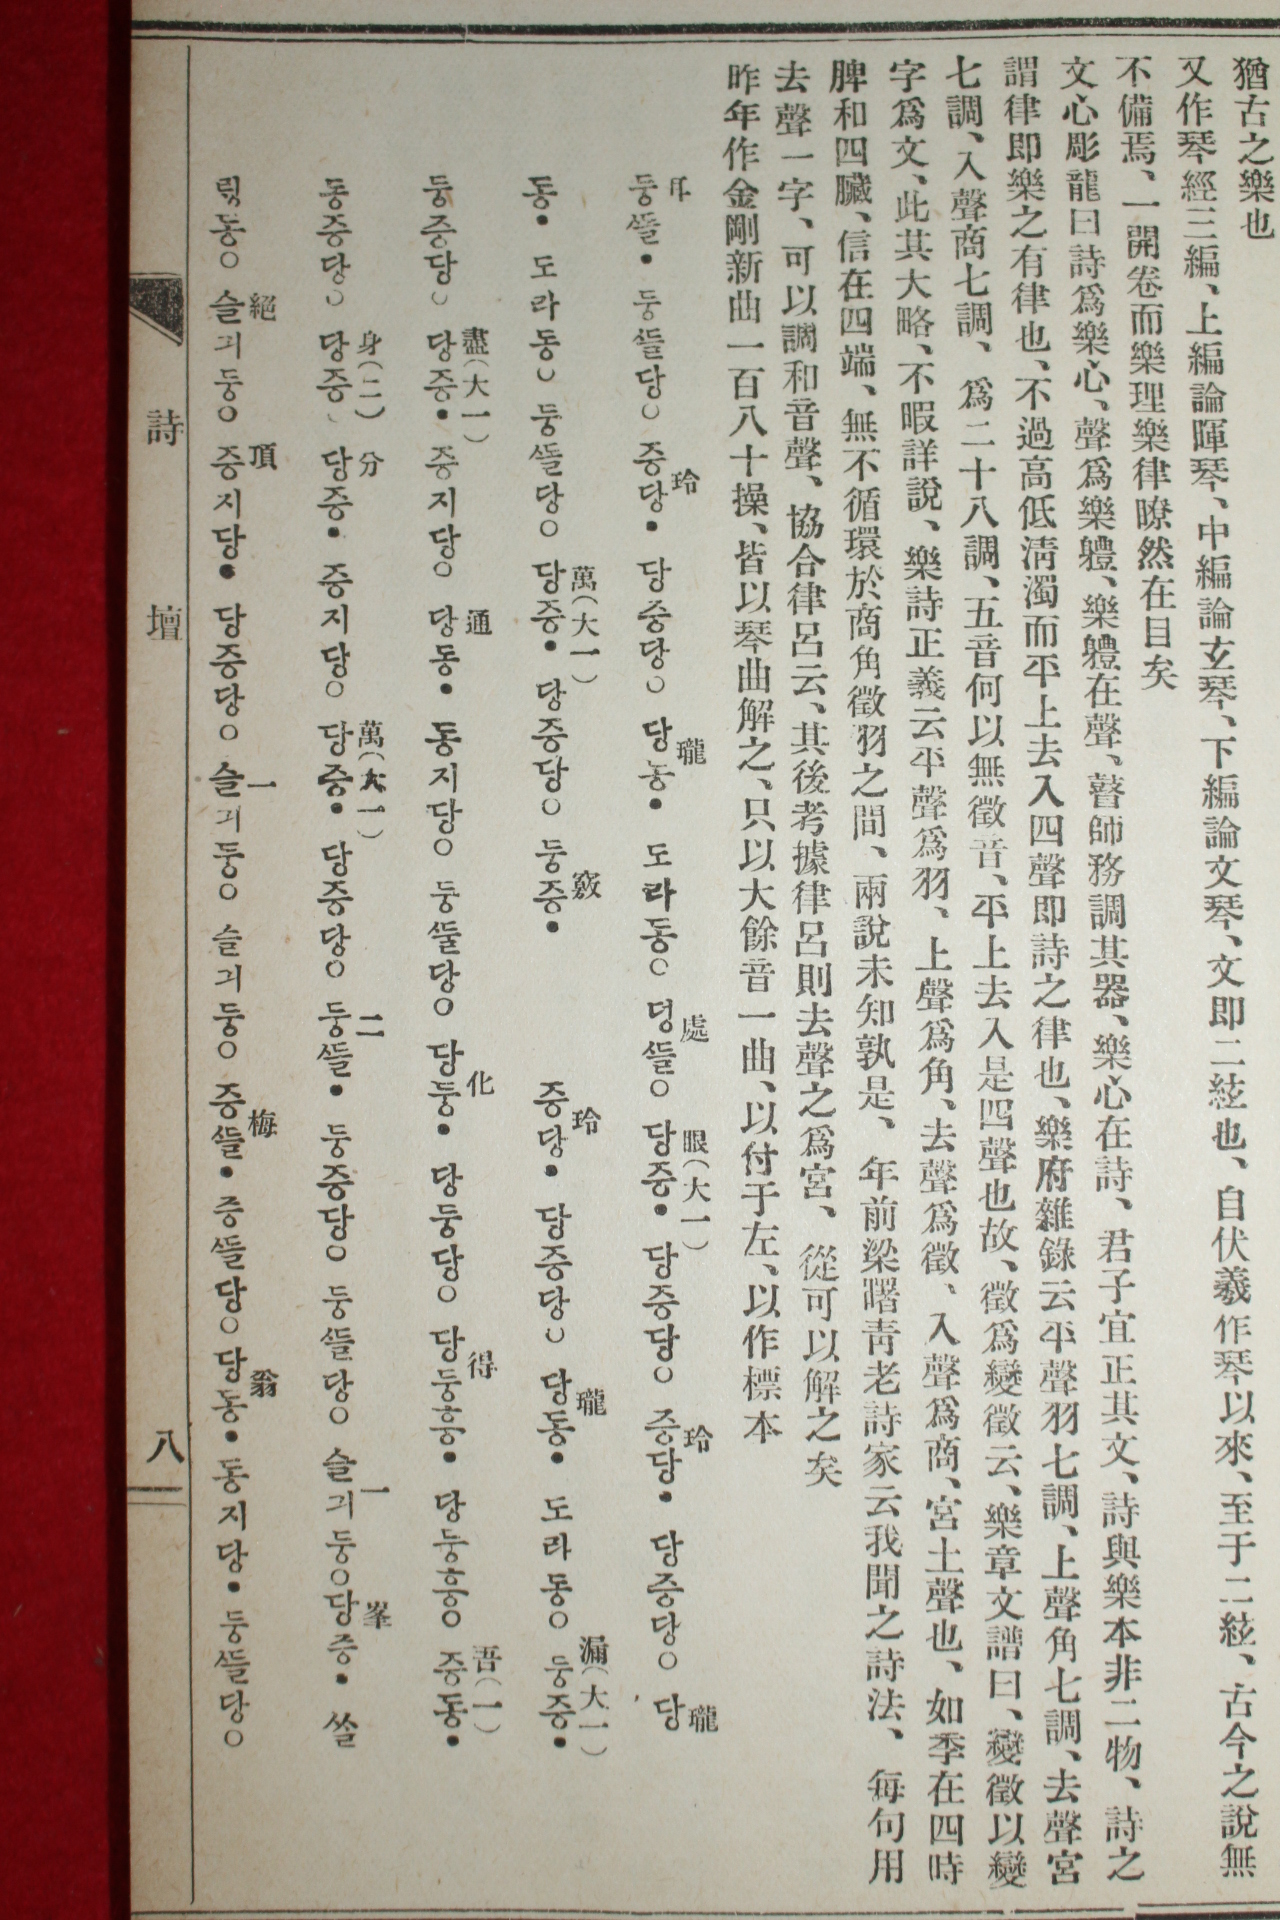 猶古之樂也
又作琴經三編、上編論暉琴、中編論玄琴、下編論文琴、文即二絃也、自伏羲作琴以來、至于二絃、古今之說無
不備焉、一開卷而樂理樂律瞭然在目矣
文心彫龍曰詩爲樂心、聲爲樂軆、樂軆在聲、瞽師務調其器、樂心在詩、君子宜正其文、詩與樂本非二物、詩之
謂律即樂之有律也、不過高低淸濁而平上去入四聲即詩之律也、樂府雜錄云平聲羽七調、上聲角七調、去聲宮
七調、入聲商七調、爲二十八調、五音何以無徵音、平上去入是四聲也故、徵爲變徵云、樂章文譜曰、變徵以變
字爲文、此其大略、不暇詳說、樂詩正義云平聲爲羽、上聲爲角、去聲爲徵、入聲爲商、宮土聲也、如季在四時
脾和四臟、信在四端、無不循環於商角徵羽之間、兩說未知孰是、年前梁曙靑老詩家云我聞之詩法、每句用
去聲一字、可以調和音聲、協合律呂云、其後考據律呂則去聲之爲宮、從可以解之矣
昨年作金剛新曲一百八十操、皆以琴曲解之、只以大餘音一曲、以付于左、以作標本
玲 瓏 處 眼(大一) 玲 瓏
둥뜰• 둥뜰당○ 증당• 당증당○ 당동• 도라동○ 덩뜰○ 당증• 당증당○ 증당• 당증당○ 당
萬(大一) 竅 玲 瓏 漏(大一)
동• 도라동○ 둥뜰당○ 당증• 당증당○ 둥증• 증당• 당증당○ 당동• 도라동○ 둥증•
盡(大一) 通 化 得 吾(一)
둥증당○ 당증• 증지당○ 당동• 동지당○ 둥뜰당○ 당둥• 당둥당○ 당둥흥• 당둥흥○ 증동•
身(二) 分 萬(大一) 二 一 峯
동증당○ 당증 당증• 증지당○ 당증• 당증당○ 둥뜰• 둥증당○ 둥뜰당○ 슬기둥○ 당증• 쏠
絕 頂 一 梅 翁
동○ 슬기둥○ 증지당• 당증당○ 슬기둥○ 슬기둥○ 증뜰• 증뜰당○ 당동• 동지당• 둥뜰당○
詩 壇 八